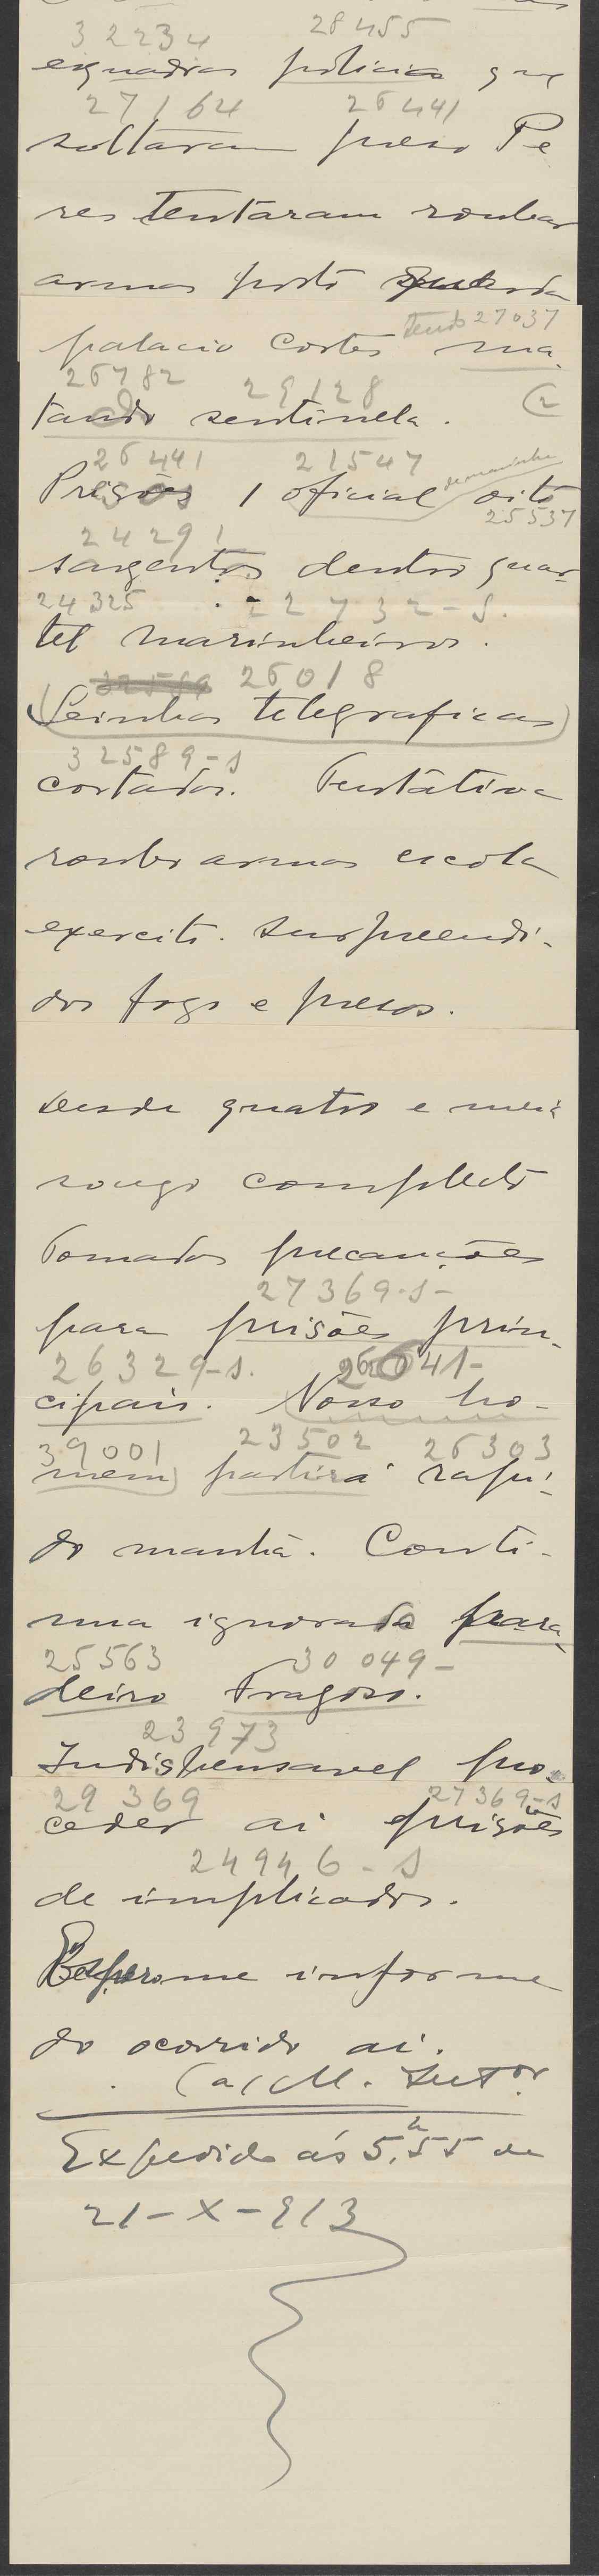 32234 28455
esquadras policia que
27164 26441
soltaram preso Pe
res tentaram roubar
armas posto guarda
palacio Cortes tendo 27037 ma-
26782 29128 (2
tando sentinela.
26441 21547
Prisões 1 oficial marinha oito
25537
24291
sargentos dentro quar-
24325 22732-S.
tel marinheiros.
26018
(Leinhas telegraficas)
32589-s
cortadas. Tentativa
roubo armas escola
exercito. Surpreendi-
dos fogo e presos.
Desde quatro e meia
socego completo
Tomadas precauções
27369-s-
para prisões prin-
26329-s. 26041-
cipais. Nosso ho-
39001 23502 26303
mem) partirá rapi-
do manhã. Conti-
nua ignorado para-
25563 30049-
deiro Fragoso.
23973
Indispensavel pro-
29369 27369-s
ceder ai prisões
24946-S
de implicados.
Espero me informe
do ocorrido ai.
(a) M. Intor
Expedido ás 5,h55 de
21-X-913